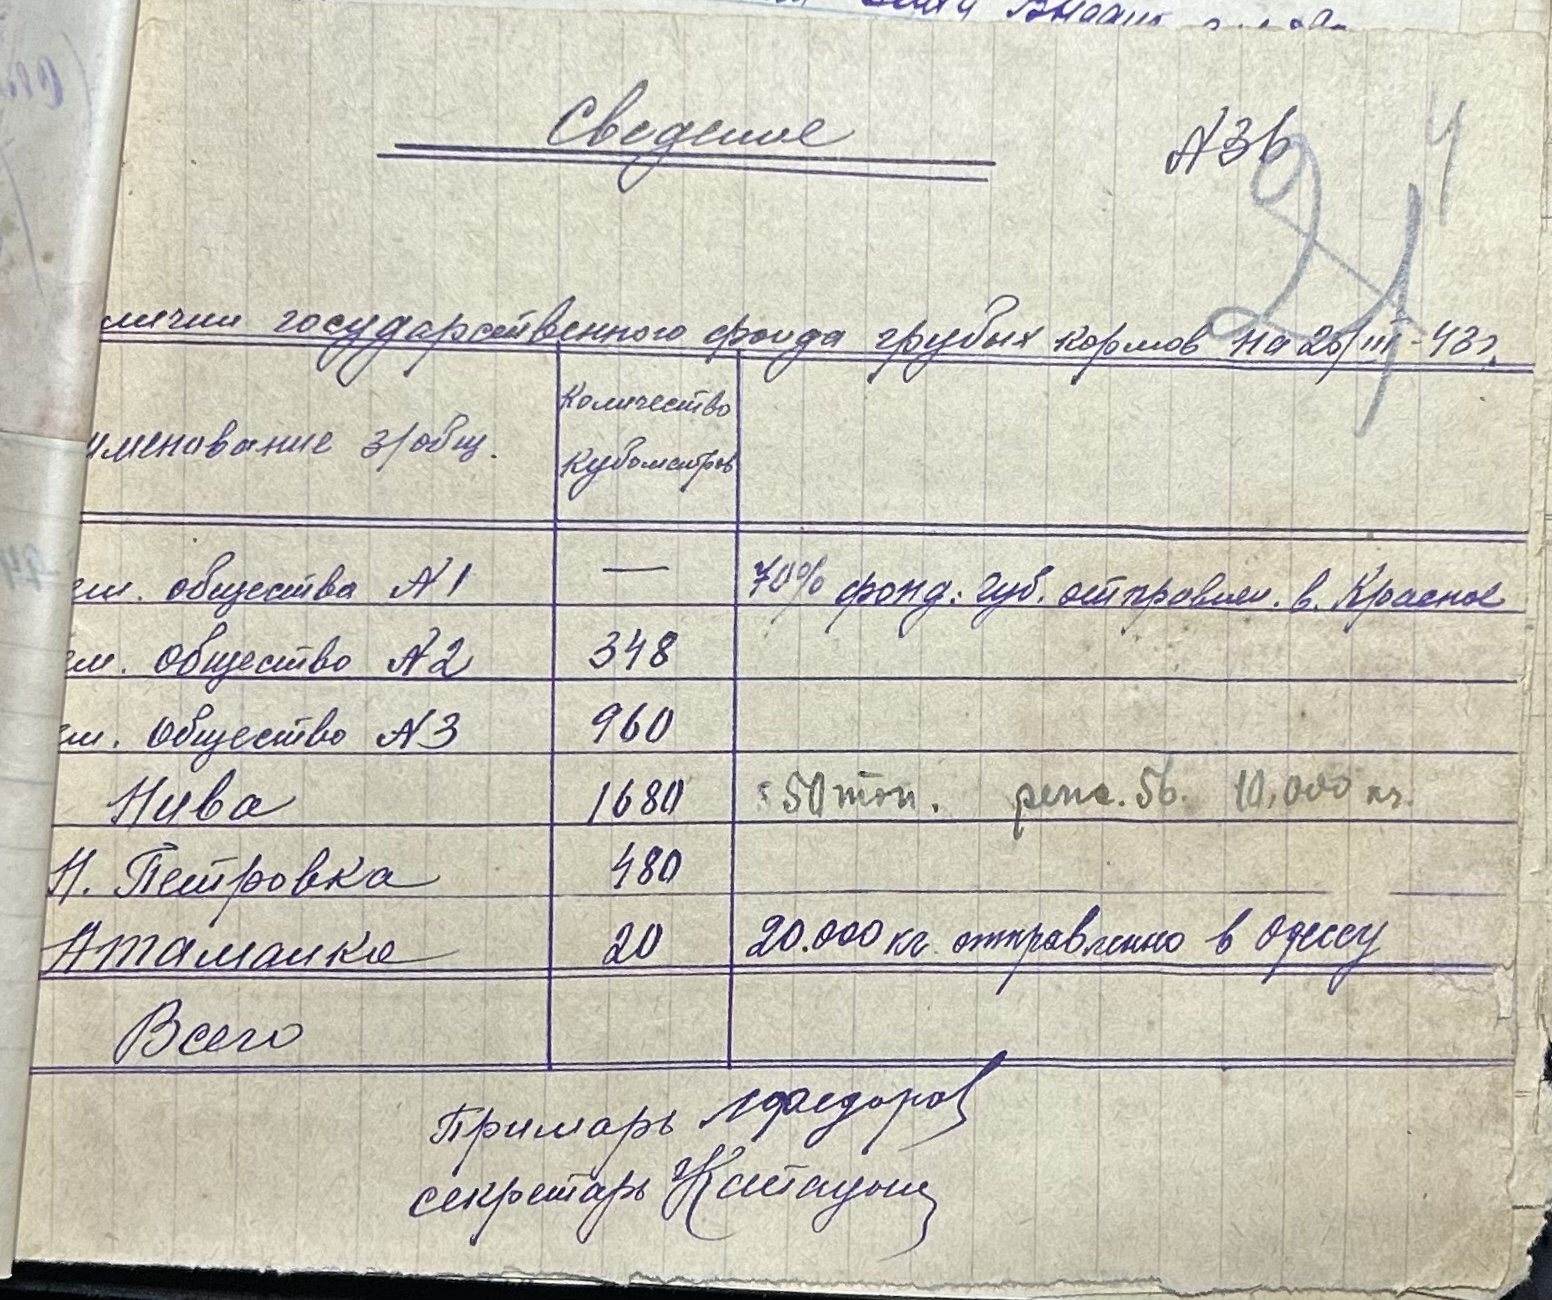 Сведение
№36
4
24
личии государственного фонда грубых кормов на 20/III-43г.
именование з/общ. Количество Кубометров
ем. общества №1 — 70% фонд. губ. отправлен. в. Красное
ем. Общество №2 348
ем. Общество №3 960
Нива 1680 50 тон. 10,000 кг.
Н. Петровка 480
Атаманка 20 20.000 кг. отправленно в Одессу
Всего
Примарь Федоров
секретарь